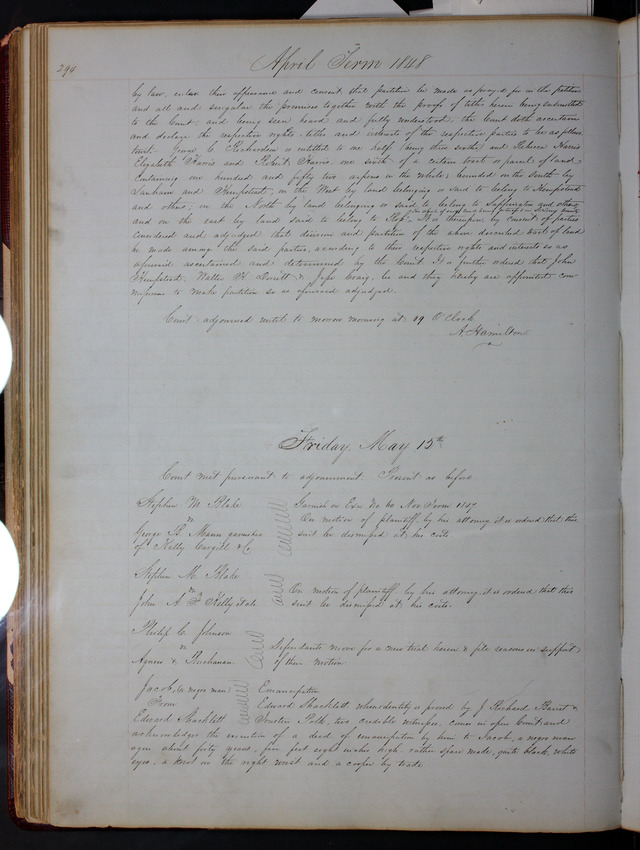 294
April Term 1848
by law, enter their appearance and consent that partition be made as prayed for in the petition
and all and singular the premises together with the proofs of title herein being submitted
to the Court and being seen heard and fully understood, the Court doth ascertain
and declare the respective rights titles and interests of the respective parties to be as follows
to wit. George C Richardson is entitled to one half (being three sixths) and Rebecca Harris
Elizabeth Harris and Robert Harris, one sixth of a certain tract or parcel of land
Containing one hundred and fifty two arpens in the whole; bounded on the South by
Lanham and Hempstead, on the West by land belonging or said to belong to Hempstead
and others; on the North by land belonging or said to belong to Sappington and others
and on the east by land said to belong to It is thereupon by consent of parties
Considered and adjudged that division and partition of the above described tract of land
be made among the said parties, according to their respective rights and interests so as
aforesaid ascertained and determined by the Court. It is further ordered that John
Hempstead, Walter H. & Craig, be and they hereby are appointed com
missioners to make partition so as aforesaid adjudged.
Court adjourned until to morrow morning at 9 O'Clock
A. Hamilton
Friday, May 12th
Court met pursuant to adjournment. Present as before
Stephen M. Blake
vs
George S. Mann garnishee
of Kelly Cargill & Co
Garnish on Exn No 60 Nov Term 1847
On motion of plaintiff by his attorney it is ordered that this
suit be dismissed at his costs
Stephen M. Blake
vs
John A. F. Kelly et als
On motion of plaintiff by his attorney, it is ordered that this
suit be dismissed at his costs.
Philip C Johnson
vs
Agnew & Buchanan
Defendants move for a new trial herein & file reasons in support
of their motion
Jacob, (a negro man)
From
Edward Shacklett
Emancipation
Edward Shacklett, whose identity is proved by J. Richard Barret &
Trusten Polk, two credible witnesses, comes in open Court and
acknowledges the execution of a deed of emancipation by him to Jacob, a negro man
ages about forty years, five feet eight inches high, rather spare made, quite black, white
eyes, a knot on the right wrist and a cooper by trade